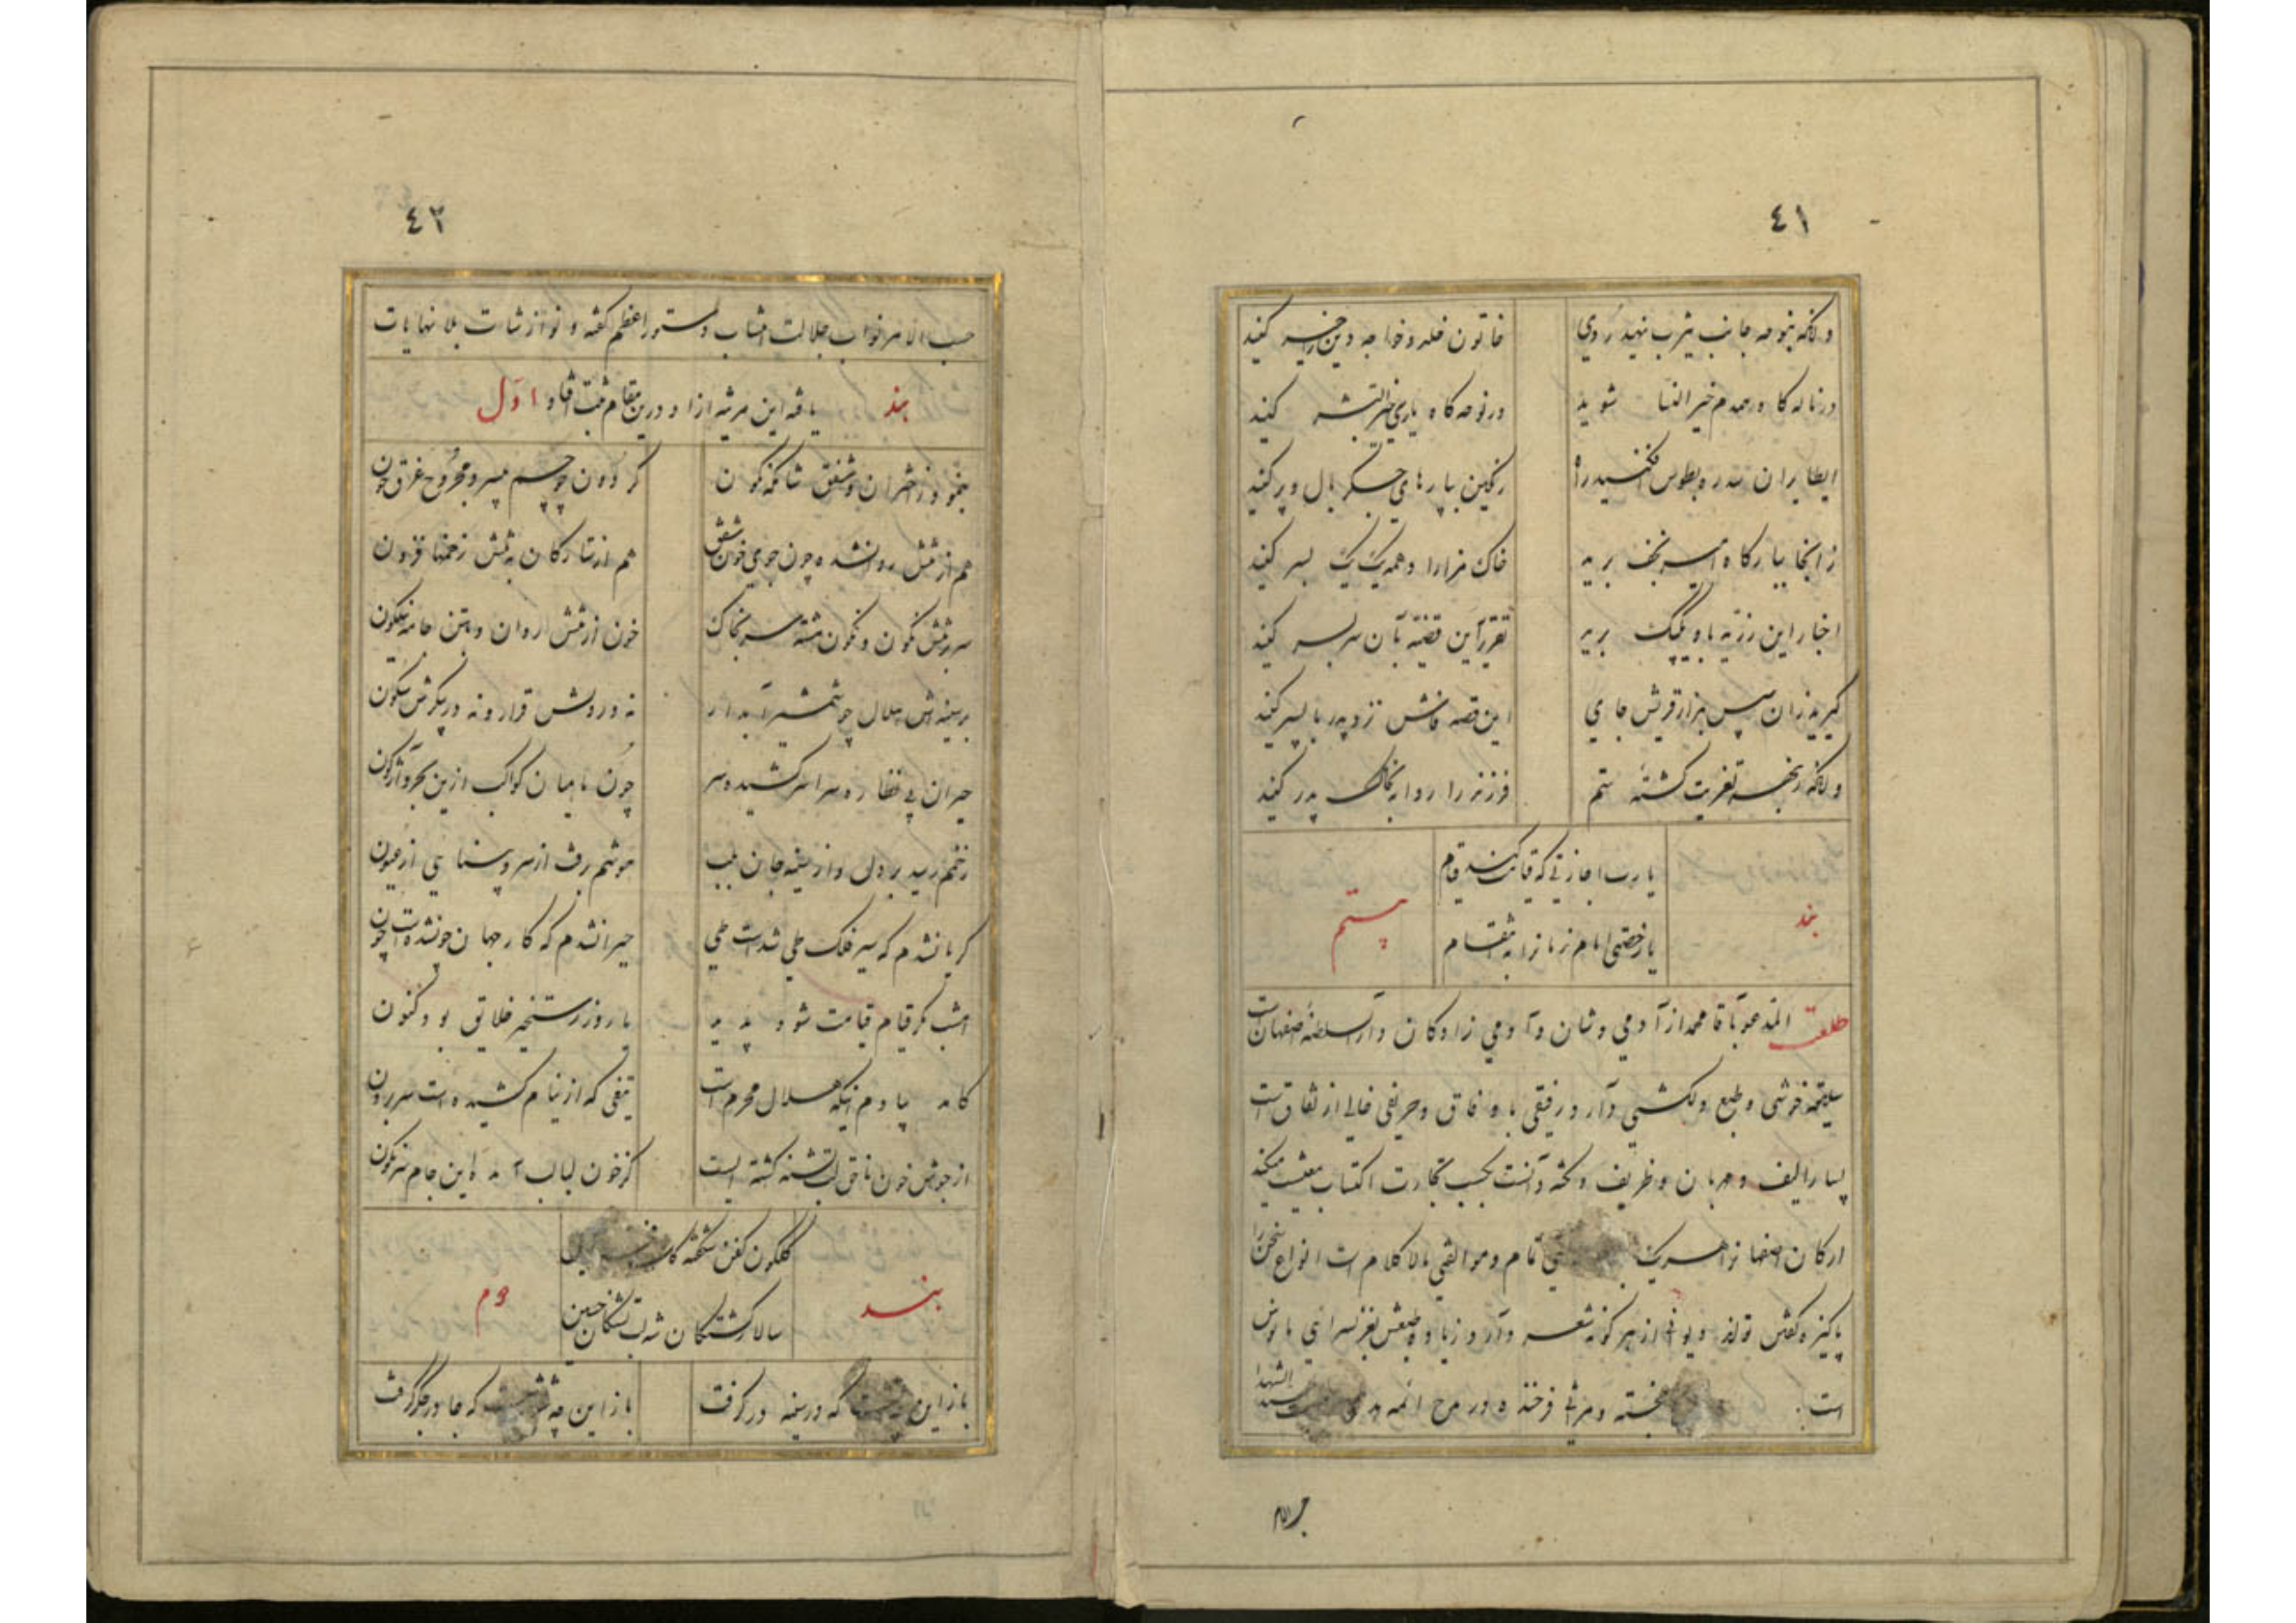 ٤١
وانگه بنوحه جانب یثرب نهید روی
خاتون خلد و خواجه دین را خبر کنید
در ناله گاه همدم خیر النسا شوید
در نوحه گاه یاری خیر البشر کنید
ایطایران سدره بطوس افکنید راه
رنگین بپارهای جگر بال و پر کنید
زانجا ببارگاه امیر نجف برید
خاک مزار او همه یک یک بسر کنید
اخبار این رزیه باو یک بیک برید
تقریر این قضیه بآن سر بسر کنید
گیرید زان سپس بمزار قریش جای
این قصه فاش نزد پدر با پسر کنید
وانگه ز بهر تعزیت کشته ستم
فرزند را روانه بخاک پدر کنید
بند
یا رب اجازتی که قیامت کند قیام
یا رخصتی امام زمانرا به انتقام
بیستم
طلعت المدعو بآقا محمد از آدمی وشان و آدمی زادگان دار السلطنه اصفهان است
سلیقه خوشی و طبع دلکشی دارد رفیقی با وفاق و حریفی خالی از نفاق است
بسیار الیف و مهربان و ظریف و نکته دانست بحسب تجارت اکتساب معیشت میکند
ارکان اصفهانرا هر یک تام و موالفتی بالا کلام است انواع سخن را
پاکیزه گفتن تواند و دیوانی از هر گونه شعر دارد و زیاده طبعش بغزلسرائی مانوس
است خجسته و مراثی فرخنده در مدح ائمه هدی سید الشهدا
حسب الامر
٤٢
حسب الامر نواب جلالت انتساب دستور اعظم گفته و نوازشات بلا نهایات
بند یافته این مرثیه از او در این مقام ثبت افتاد اول
بنمود ز اختران و شفق شامگه گون
گردون چو جسم سرور مجروح غرق خون
هم از تنش روانشده چون جوی خون شفق
هم از ستارگان به تنش زخمها فزون
سر بر تنش نگون و نگون گشته سر بخاک
خون از تنش روان و بتن جامه نیلگون
بر سینه اش هلال چو شمشیر آبدار
نه در دلش قرار و نه در پیکرش سکون
حیران پی نظاره سراسر کشیده سر
چون ماهیان کواکب ازین بحر واژگون
زخمم رسید بر دل و از سینه جان بلب
هوشم برفت از سر و بینایی از عیون
گریانشدم که سیر فلک طی شد است طی
حیرانشدم که کار جهان چونشده است چون
امشب مگر قیام قیامت شود پدید
یا روز رستخیز خلایق بود کنون
کامد بیادم اینکه هلال محرم است
تیغی که از نیام کشیده است سر برون
از جوش خون ناحق لب تشنه کشته ایست
کز خون لبالب آمده این جام سرنگون
بند
گلگون کفن شکفته
سالار کشتگان شه لب تشنگان حسین
دوم
باز این که در سینه در گرفت
باز این چه که جا در جگر گرفت